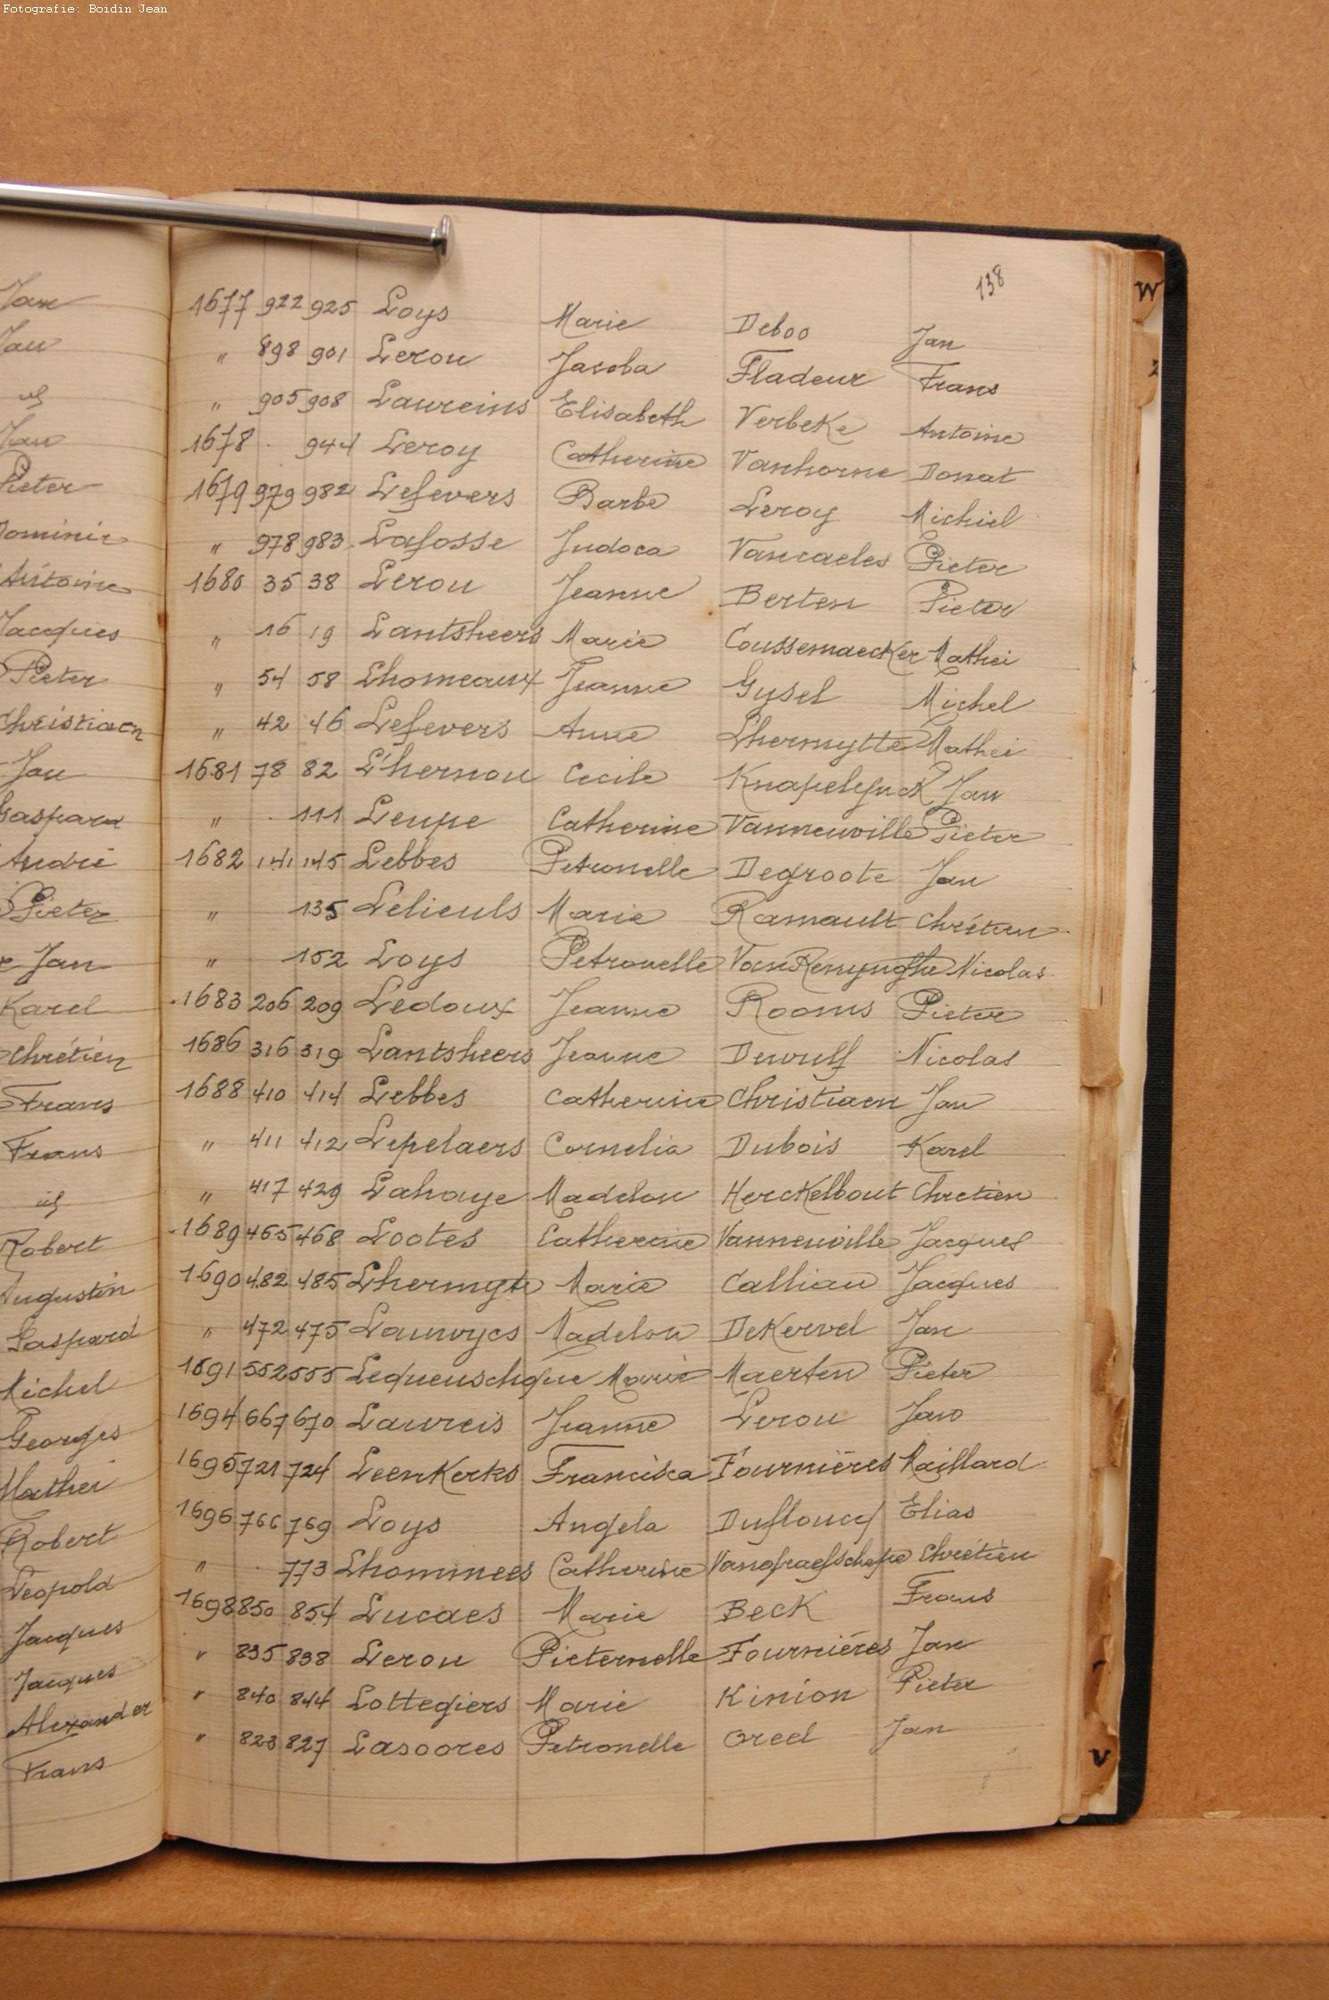 Fotografie: Boidin Jean
138
W
1677 922 925 Loys Marie Deboo Jan
" 898 901 Lerou Jacoba Fladeur Frans
" 905 908 Laureins Elisabeth Verbeke Antoine
1678 . 944 Leroy Catherine Vanhorne Donat
1679 979 982 Lefevers Barbe Leroy Michiel
" 978 983 Lafosse Judoca Vancaeles Pieter
1680 35 38 Lerou Jeanne Berten Pieter
" 16 19 Lantsheers Marie Coussemaecker Mathei
" 54 58 Lhomeaux Jeanne Gysel Michel
" 42 46 Lefevers Anne Lhermytte Mathei
1681 78 82 L'hernou Cecile Knapelynck Jan
" . 111 Leupe Catherine Vanneuville Pieter
1682 141 145 Lebbes Petronelle Degroote Jan
" 135 Lelieuls Marie Ramault Chrétien
" 152 Loys Petronelle Van Renynghe Nicolas
1683 206 209 Ledoux Jeanne Rooms Pieter
1686 316 319 Lantsheers Jeanne Dewulf Nicolas
1688 410 414 Lebbes Catherine Christiaen Jan
" 411 412 Lepelaers Cornelia Dubois Karel
" 417 429 Lahaye Madelon Herckelbout Chretien
1689 465 468 Lootes Catherine Vanneuville Jacques
1690 482 485 Lhermyte Marie Calliau Jacques
" 472 475 Lauwycs Madelon DeKervel Jan
1691 552 555 Lequeuschque Marie Maerten Pieter
1694 667 670 Laureis Jeanne Lerou Jan
1695 721 724 Leenkerks Francisca Fournières Maillard
1696 766 769 Loys Angela Elias
" . 773 Lhommees Catherine Vangraefschepe Chretien
1698 850 854 Lucaes Marie Beck Frans
" 835 838 Lerou Pieternelle Fournières Jan
" 840 844 Lottegiers Marie Kinion Pieter
" 823 827 Lasoores Petronelle Oreel Jan
V
Jan
Jan
id
Jan
Pieter
Dominic
Antoine
Jacques
Pieter
Christiaen
Jan
Gaspard
André
Pieter
Jan
Karel
Chrétien
Frans
Frans
id
Robert
Augustin
Gaspard
Michel
Georges
Mathei
Robert
Leopold
Jacques
Jacques
Alexander
Frans